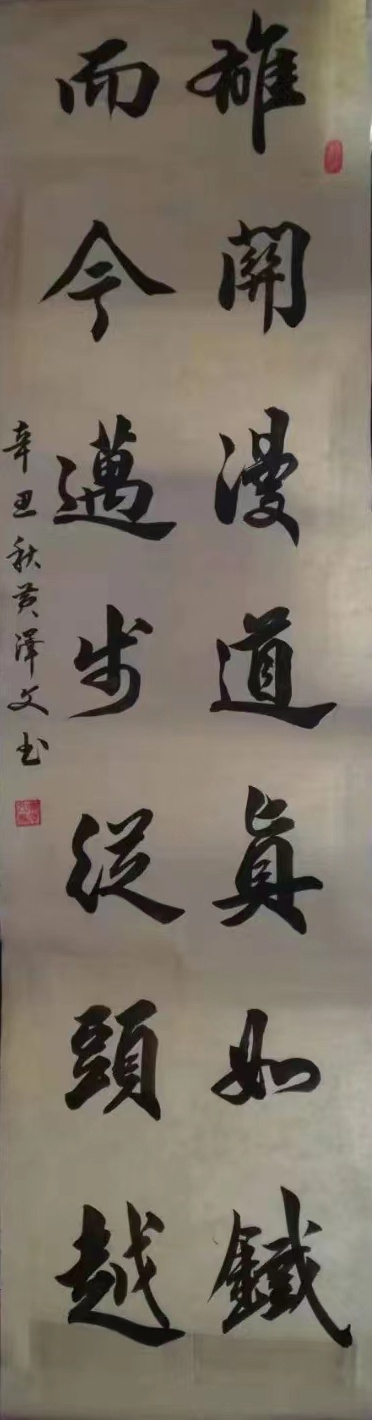 雄關漫道真如鐵
而今邁步從頭越
辛丑秋黃澤文书